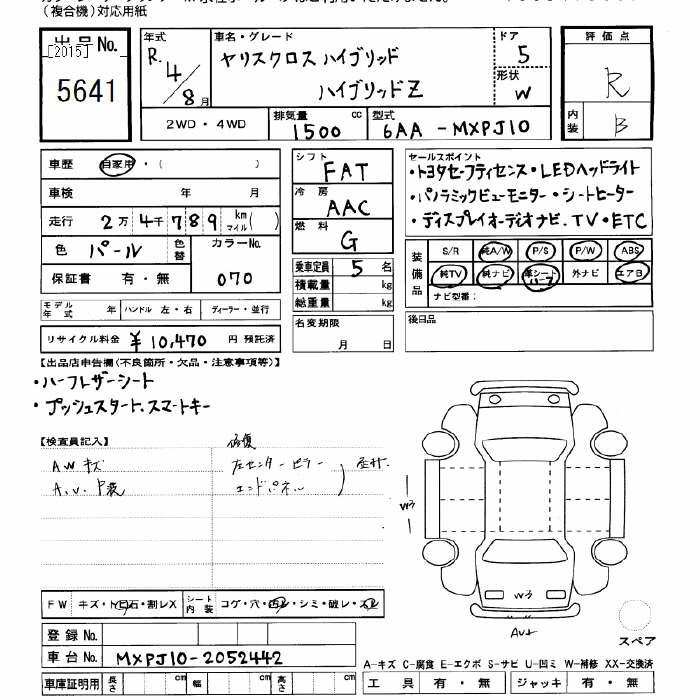 (複合機)対応用紙
出品No.
[2015]
5641
年式
R.4/8月
車名・グレード
ヤリスクロス ハイブリッド
ハイブリッドZ
ドア
5
形状
W
評価点
R
内装
B
2WD・4WD
排気量 1500 cc
型式 6AA-MXPJ10
車歴 自家用・( )
車検 年 月
走行 2万4千789 km マイル( )
色 パール 色替
カラーNo. 070
保証書 有・無
モデル年式 年 ハンドル 左・右 ディーラー・並行
リサイクル料金 ¥10,470 円 預託済
シフト FAT
冷房 AAC
燃料 G
乗車定員 5 名
積載量 kg
総重量 kg
名変期限
月 日
セールスポイント
・トヨタセーフティセンス・LEDヘッドライト
・パノラミックビューモニター・シートヒーター
・ディスプレイオーディオナビ.TV・ETC
装備品
S/R 純A/W P/S P/W ABS
純TV 純ナビ 革シート ハーフ 外ナビ エアB
ナビ型番:
後日品
【出品店申告欄(不良箇所・欠品・注意事項等)】
・ハーフレザーシート
・プッシュスタート.スマートキー
【検査員記入】
修復
AWキズ
左センターピラー
エンドパネル
W3
W3
FW キズ・飛石・割レX
シート内装 コゲ・穴・汚レ・シミ・破レ・スレ
登録No.
車台No. MXPJ10-2052442
車庫証明用 長さ cm 幅 cm 高さ cm
スペア
A-キズ C-腐食 E-エクボ S-サビ U-凹ミ W-補修 XX-交換済
工具 有・無 ジャッキ 有・無